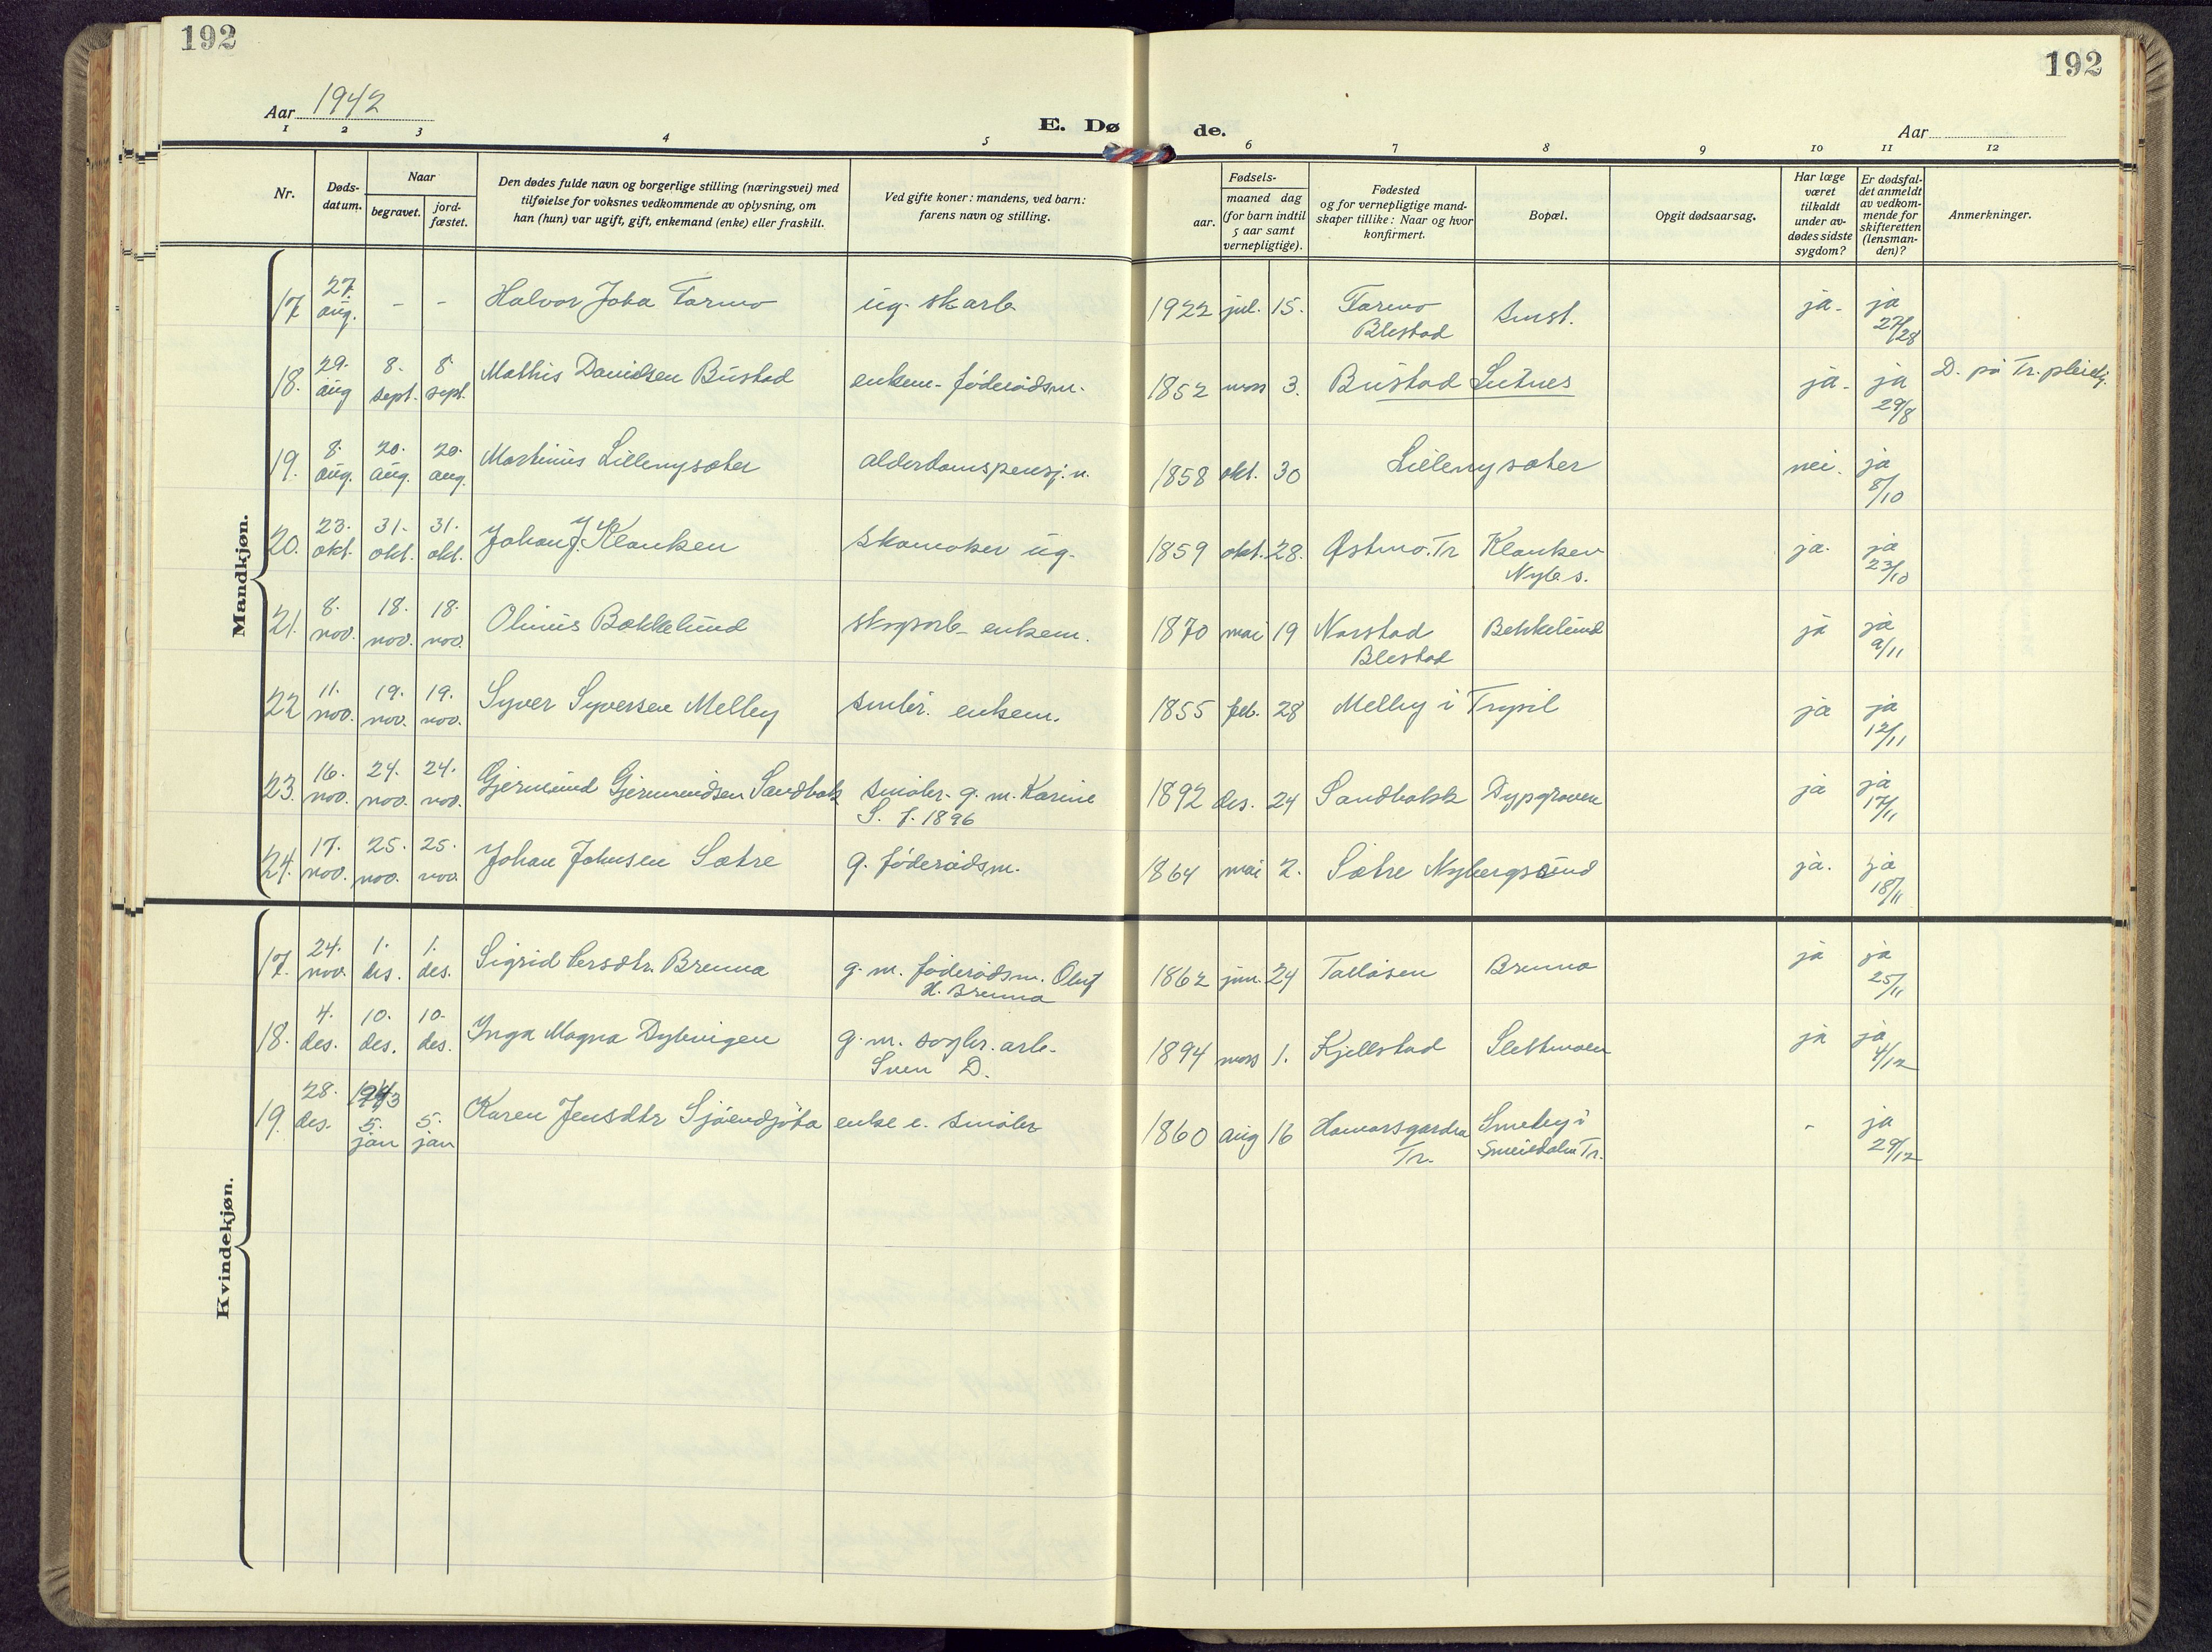 192
192
Aar 1942
E. Dø
de.
Aar
1 2 3 4 5 6 7 8 9 10 11 12
Nr.
Døds-datum.
Naar
begravet.
jord-fæstet.
Den dødes fulde navn og borgerlige stilling (næringsvei) med
tilføielse for voksnes vedkommende av oplysning, om
han (hun) var ugift, gift, enkemand (enke) eller fraskilt.
Ved gifte koner: mandens, ved barn:
farens navn og stilling.
Fødsels-
aar.
maaned dag
(for barn indtil
5 aar samt
vernepligtige).
Fødested
og for vernepligtige mand-
skaper tillike: Naar og hvor
konfirmert.
Bopæl.
Opgit dødsaarsag.
Har læge
været
tilkaldt
under av-
dødes sidste
sygdom?
Er dødsfal-
det anmeldt
av vedkom-
mende for
skifteretten
(lensman-
den)?
Anmerkninger.
Mandkjøn.
17. 27. aug. - - Halvor Joba Tarmo ug. skarb. 1922 jul. 15. Tarmo Blestad ja. ja 27/28
18. 29. aug 8. sept. 8 sept. Mathis Davidsen Bustad enkem. føderådsm. 1852 mars 3. Bustad Lutnes ja. ja 29/8 D. på Tr. pleiehj.
19. 8. aug. 20. aug. 20. aug. Martinus Lillenysæter alderdomspensj. u. 1858 okt. 30 Lillenysæter nei. ja 8/10
20. 23. okt. 31. okt. 31. okt. Johan J. Klanken skomaker ug. 1859 okt. 28. Østmo. Tr Klanken Nybs. ja. ja 23/10
21. 8. nov. 18. nov. 18. nov. Olinus Bækkelund skogsarb. enkem. 1870 mai 19 Narstad Blestad Bekkelund ja ja 9/11
22 11. nov. 19. nov. 19. nov. Syver Syversen Melby småbr. enkem. 1855 feb. 28 Melby i Trysil ja ja 12/11
23. 16. nov. 24. nov. 24. nov. Gjermund Gjermundsen Sandbakk småbr. g. m. Karine S. f. 1896 1892 des. 24 Sandbakk Dypgraven ja ja 17/11
24. 17. nov. 25. nov. 25. nov. Johan Johnsen Sætre g. føderådsm. 1864 mai 2. Sætre Nybergsund ja. ja 18/11
Kvindekjøn.
17. 24. nov. 1. des. 1. des. Sigrid Persdtr. Brenna g. m. føderådsm. Oluf H. Brenna 1862 jun. 24 Tallåsen Brenna ja ja 25/11
18. 4. des. 10. des. 10. des. Inga Magna Dybvigen g. m. sagbr. arb. Sven D. 1894 mars 1. Kjellstad Slettmoen ja ja 4/12
19. 28. des. 1943 5. jan 5. jan Karen Jensdtr Sjøendjøta enke e. småbr 1860 aug 16 Hamarsgarden Tr. Smeby i Tr. - ja 29/12